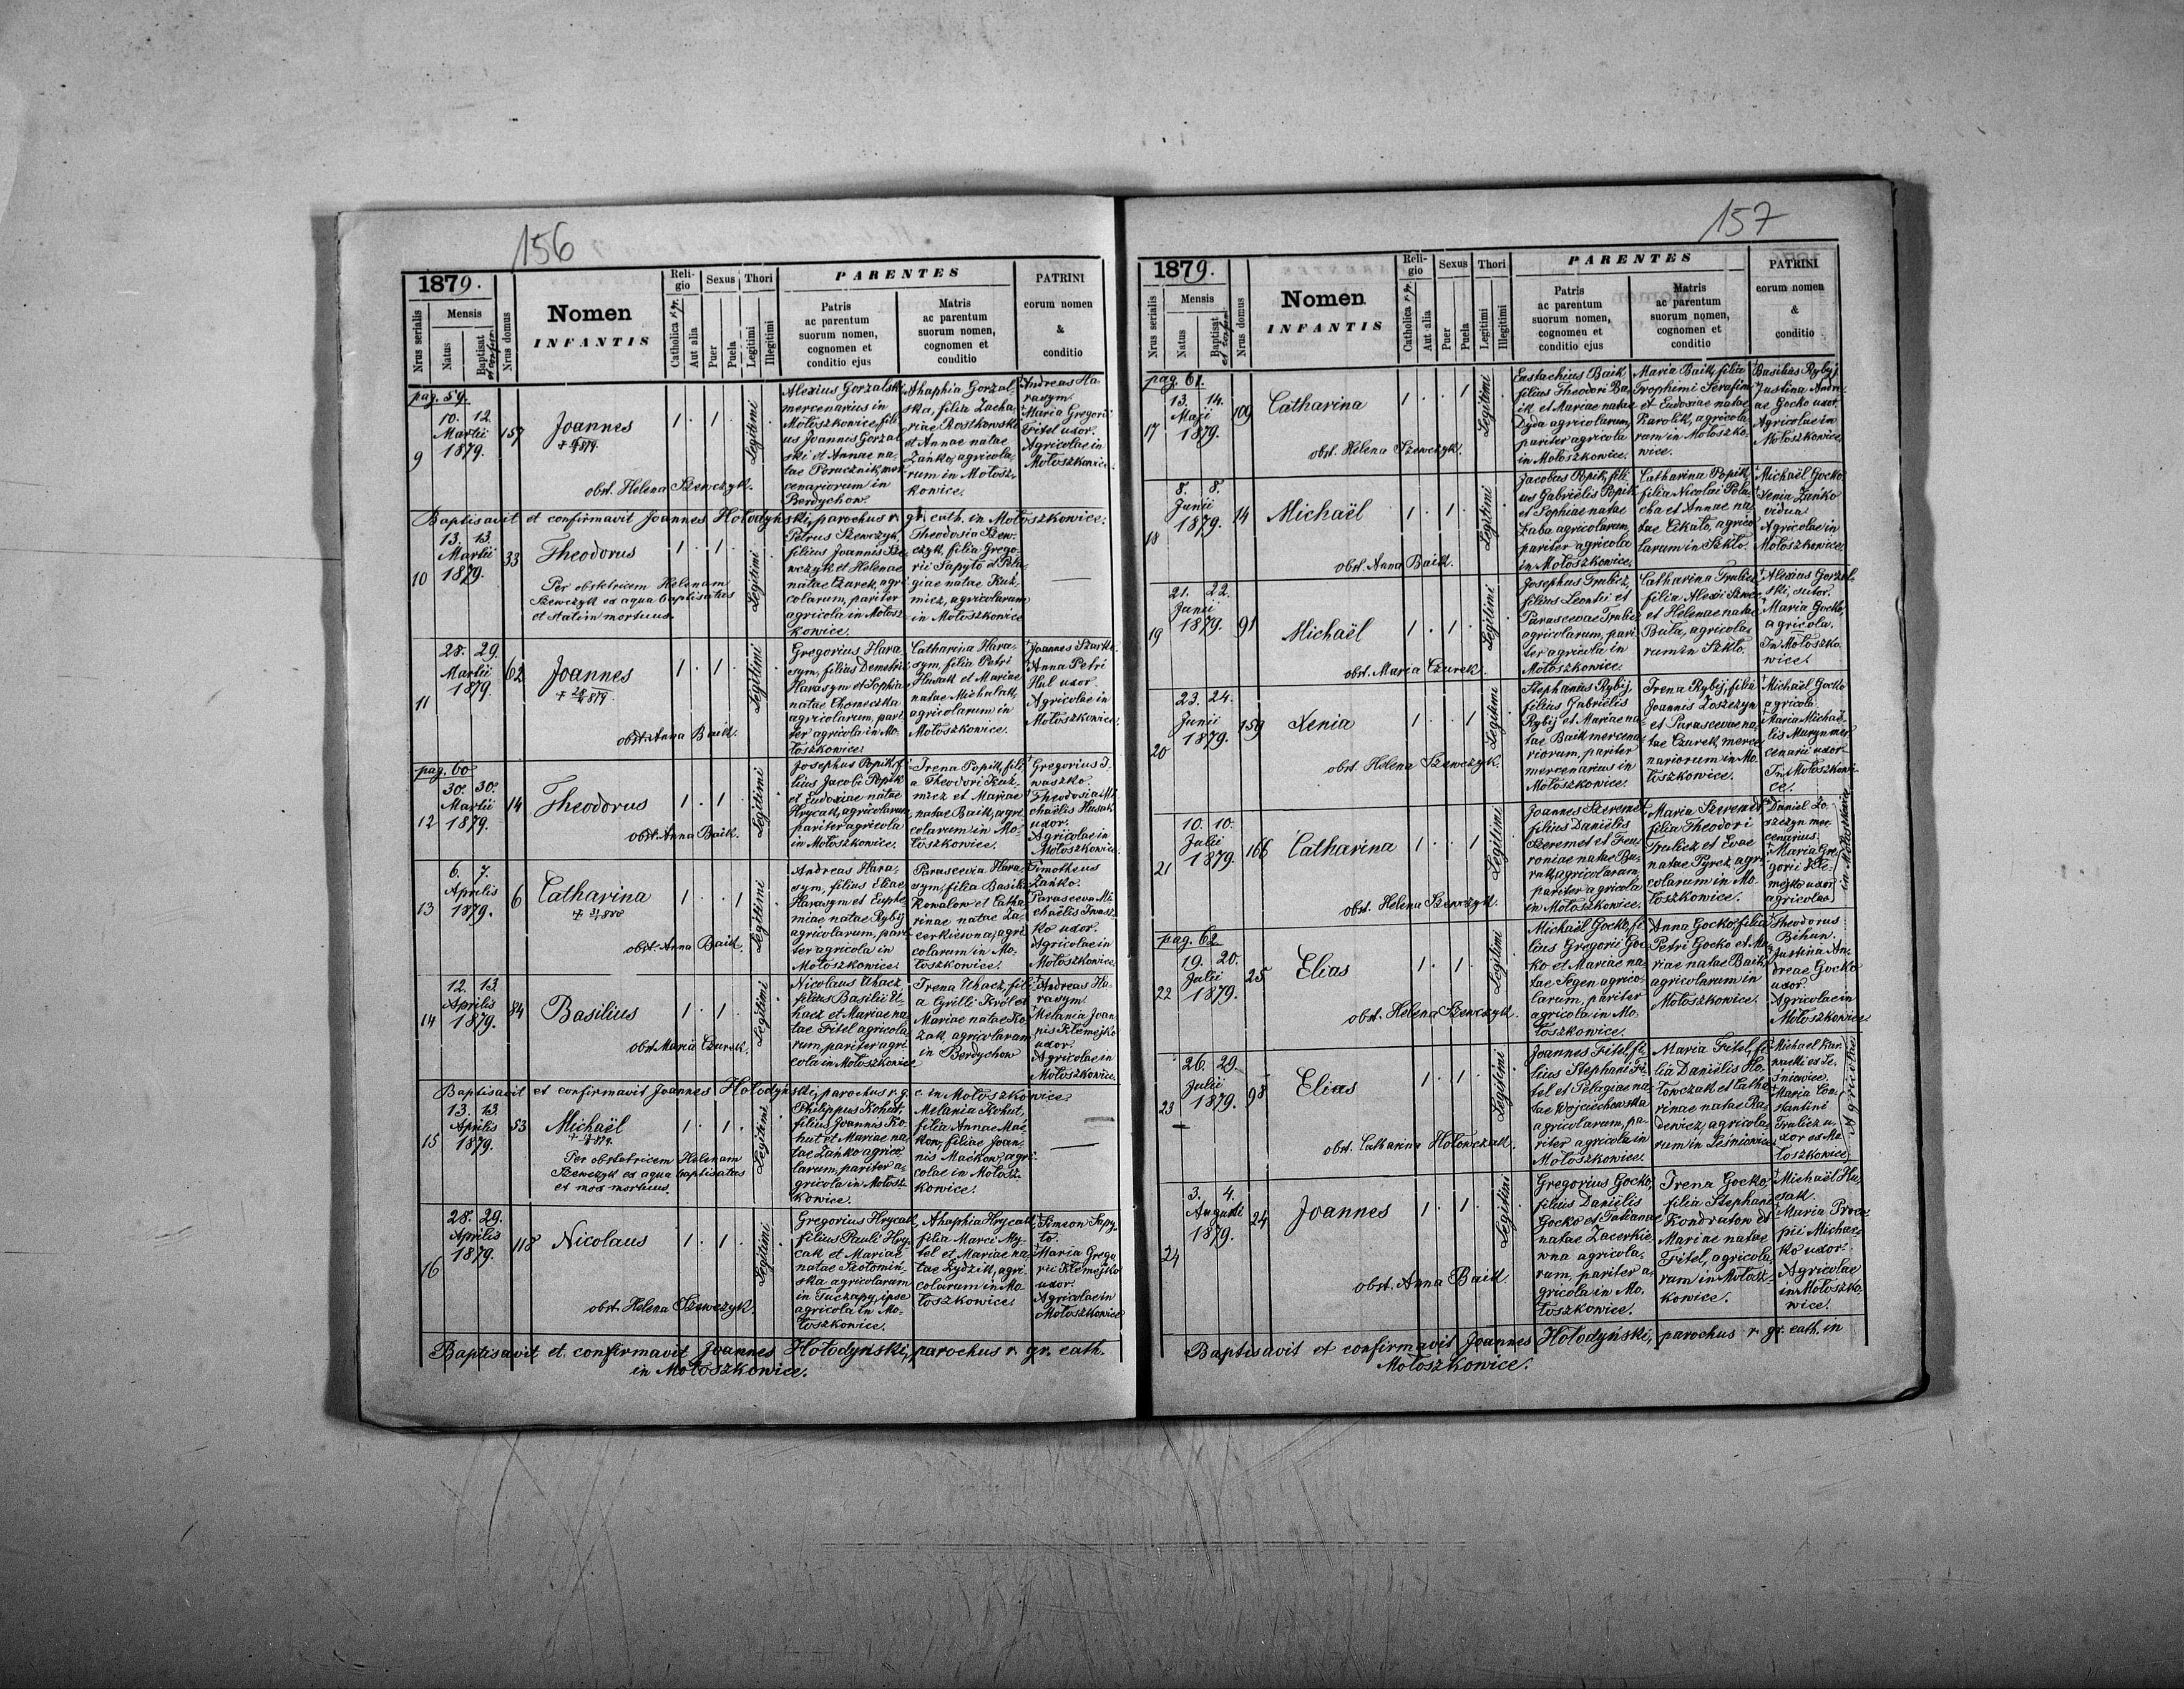 156
1879.
Nrus serialis
Mensis
Natus
Baptisat
et confirm.
Nrus domus
Nomen
INFANTIS
Religio
Catholica r. gr.
Aut alia
Sexus
Puer
Puela
Thori
Legitimi
Illegitimi
PARENTES
Patris
ac parentum
suorum nomen,
cognomen et
conditio ejus
Matris
ac parentum
suorum nomen,
cognomen et
conditio
PATRINI
eorum nomen
&
conditio
pag. 59.
9
10. 12.
Martii
1879.
157
Joannes
1 . 1 .
Legitimi
obst. Helena Szewczyk.
Alexius Gorzalski,
mercenarius in
Mołoszkowice, fili-
us Joannis Gorzal-
ski et Annae na-
tae Poracznik, mer-
cenariorum in
Berdychow.
Ahaphia Gorzal-
ska, filia Zacha-
riae Roszkowski
et Annae natae
Zańko, agricola-
rum in Mołosz-
kowice.
Andreas Ha-
rasym.
Maria Gregorii
Fitel uxor.
Agricolae in
Mołoszkowice.
Baptisavit et confirmavit Joannes Hołodyński, parochus r. gr. cath. in Mołoszkowice.
10
13. 13.
Martii
1879.
33
Theodorus
1 . 1 .
Legitimi
Per obstetricem Helenam
Szewczyk ex aqua baptisatus
et statim mortuus.
Petrus Szewczyk,
filius Joannis Sze-
wczyk et Helenae
natae Czurek, agri-
colarum, pariter
agricola in Mołosz-
kowice.
Theodosia Szew-
czyk, filia Grego-
rii Sapyto et Pela-
giae natae Kuź-
micz, agricolarum
in Mołoszkowice
11
28. 29.
Martii
1879.
62
Joannes
1 . 1 .
Legitimi
obst. Anna Baik.
Gregorius Hara-
sym, filius Demetrii
Harasym et Sophiae
natae Chomeczka
agricolarum, pari-
ter agricola in Mo-
łoszkowice.
Catharina Hara-
sym, filia Petri
Husak et Mariae
natae Michalak,
agricolarum in
Mołoszkowice.
Joannes Szarko.
Anna Petri
Hul uxor.
Agricolae in
Mołoszkowice.
pag. 60
12
30. 30.
Martii
1879.
14
Theodorus
1 . 1 .
Legitimi
obst. Anna Baik.
Josephus Popik, fi-
lius Jacobi Popik
et Eudoxiae natae
Hrycak, agricolarum,
pariter agricola
in Mołoszkowice.
Irena Popik, fili-
a Theodori Kuź-
micz et Mariae
natae Baik, agri-
colarum in Mo-
łoszkowice.
Gregorius I-
waszko.
Theodosia Mi-
chaëlis Husak
uxor.
Agricolae in
Mołoszkowice.
13
6. 7.
Aprilis
1879.
6
Catharina
1 . . 1
Legitimi
obst. Anna Baik.
Andreas Hara-
sym, filius Eliae
Harasym et Euphe-
miae natae Rybij
agricolarum, pari-
ter agricola in
Mołoszkowice.
Parascevia Hara-
sym, filia Basilii
Kowalow et Catha-
rinae natae Za-
cerkiewna, agri-
colarum in Mo-
łoszkowice.
Timotheus
Zańko.
Parasceva Mi-
chaëlis Iwasz-
ko uxor.
Agricolae in
Mołoszkowice.
14
12. 13.
Aprilis
1879.
84
Basilius
1 . 1 .
Legitimi
obst. Maria Czurek.
Nicolaus Uhacz
filius Basilii U-
hacz et Mariae na-
tae Fitel agricola-
rum, pariter agri-
cola in Mołoszkowice
Irena Uhacz, fili-
a Cyrilli Król et
Mariae natae Ko-
zak, agricolarum
in Berdychow
Andreas Ha-
rasym.
Melania Joan-
nis Klemejko
uxor.
Agricolae in
Mołoszkowice.
Baptisavit et confirmavit Joannes Hołodyński, parochus r. g. c. in Mołoszkowice.
15
13. 13.
Aprilis
1879.
53
Michaël
1 . 1 .
Legitimi
Per obstetricem Helenam
Szewczyk ex aqua baptisatus
et mox mortuus.
Philippus Kohut,
filius Joannis Ko-
hut et Mariae na-
tae Zańko agrico-
larum, pariter a-
gricola in Mołosz-
kowice.
Melania Kohut,
filia Annae Mać-
kow, filiae Joan-
nis Maćkow, agri-
colae in Mołosz-
kowice.
16
28. 29.
Aprilis
1879.
118
Nicolaus
1 . 1 .
Legitimi
obst. Helena Szewczyk.
Gregorius Hrycak,
filius Pauli Hry-
cak et Mariae
natae Szołomiń-
ska agricolarum
in Tuczapy, ipse
agricola in Mo-
łoszkowice.
Ahaphia Hrycak,
filia Marci My-
tel et Mariae na-
tae Zydzik, agri-
colarum in Mo-
łoszkowice.
Simeon Sapy-
to.
Maria Grego-
rii Klemejko
uxor.
Agricolae in
Mołoszkowice
Baptisavit et confirmavit Joannes Hołodyński, parochus r. gr. cath.
in Mołoszkowice.
157
1879.
Nrus serialis
Mensis
Natus
Baptisat
et confirm.
Nrus domus
Nomen
INFANTIS
Religio
Catholica r. gr.
Aut alia
Sexus
Puer
Puela
Thori
Legitimi
Illegitimi
PARENTES
Patris
ac parentum
suorum nomen,
cognomen et
conditio ejus
Matris
ac parentum
suorum nomen,
cognomen et
conditio
PATRINI
eorum nomen
&
conditio
pag. 61.
17
13. 14.
Maji
1879.
109
Catharina
1 . . 1
Legitimi
obst. Helena Szewczyk.
Eustachius Baik
filius Theodori Ba-
ik et Mariae natae
Dyda agricolarum,
pariter agricola
in Mołoszkowice.
Maria Baik, filia
Trophimi Serafin
et Eudoxiae natae
Karolik, agricola-
rum in Mołoszko-
wice.
Basilius Rybij.
Justina Andre-
ae Gocko uxor.
Agricolae in
Mołoszkowice.
18
8. 8.
Junii
1879.
14
Michaël
1 . 1 .
Legitimi
obst. Anna Baik.
Jacobus Popik, fili-
us Gabriëlis Popik
et Sophiae natae
Zaba agricolarum,
pariter agricola
in Mołoszkowice.
Catharina Popik,
filia Nicolai Pola-
cha et Annae na-
tae Cikało, agrico-
larum in Szkło.
Michaël Gocko.
Xenia Zańko
vidua.
Agricolae in
Mołoszkowice.
19
21. 22.
Junii
1879.
91
Michaël
1 . 1 .
Legitimi
obst. Maria Czurek.
Josephus Trulicz,
filius Leontii et
Parascevae Trulicz
agricolarum, pari-
ter agricola in
Mołoszkowice.
Catharina Trulicz
filia Alexii Szwec
et Helenae natae
Buła, agricola-
rum in Szkło.
Alexius Gorzal-
ski, sutor.
Maria Gocko,
agricola.
In Mołoszko-
wice.
20
23. 24.
Junii
1879.
159
Xenia
1 . . 1
Legitimi
obst. Helena Szewczyk.
Stephanus Rybij,
filius Gabriëlis
Rybij et Mariae na-
tae Baik mercena-
riorum, pariter
mercenarius in
Mołoszkowice.
Irena Rybij, filia
Joannis Łoszczyn
et Parascevae na-
tae Czurek, merce-
nariorum in Mo-
łoszkowice.
Michaël Gocko
agricola.
Maria Michaë-
lis Muryn mer-
cenarii uxor
In Mołoszkowi-
ce.
21
10. 10.
Julii
1879.
166
Catharina
1 . . 1
Legitimi
obst. Helena Szewczyk.
Joannes Szeremet,
filius Daniëlis
Szeremet et Feu-
roniae natae Bu-
rak, agricolarum,
pariter agricola
in Mołoszkowice.
Maria Szeremet,
filia Theodori
Trulicz et Evae
natae Pyrcz, agri-
colarum in Mo-
łoszkowice.
Daniel Ło-
szczyn mer-
cenarius.
Maria Gre-
gorii Kle-
mejko uxor
agricolae
in Mołoszkowice
pag. 62
22
19. 20.
Julii
1879.
25
Elias
1 . 1 .
Legitimi
obst. Helena Szewczyk.
Michaël Gocko, fi-
lius Gregorii Goc-
ko et Mariae na-
tae Segen agrico-
larum, pariter
agricola in Mo-
łoszkowice.
Anna Gocko, filia
Petri Gocko et Ma-
riae natae Baik,
agricolarum in
Mołoszkowice.
Theodorus
Bihun.
Justina An-
dreae Gocko
uxor.
Agricolae in
Mołoszkowice
23
26. 29.
Julii
1879.
98
Elias
1 . 1 .
Legitimi
obst. Catharina Hołowczak.
Joannes Fitel, fi-
lius Stephani Fi-
tel et Pelagiae na-
tae Wojciechowska
agricolarum, pa-
riter agricola in
Mołoszkowice.
Maria Fitel, fi-
lia Daniëlis Ho-
łowczak et Catha-
rinae natae Ra-
dewicz, agricola-
rum in Leśniowice.
Maria Con-
stantini
Trulicz u-
xor ex Mo-
łoszkowice
Agricolae
24
3. 4.
Augusti
1879.
24
Joannes
1 . 1 .
Legitimi
obst. Anna Baik
Gregorius Gocko,
filius Daniëlis
Gocko et Tatianae
natae Zacerkie-
wna agricola-
rum, pariter a-
gricola in Mo-
łoszkowice.
Irena Gocko,
filia Stephani
Kondratow et
Mariae natae
Fitel, agricola-
rum in Mołosz-
kowice.
Michaël Hu-
sak.
Maria Proco-
pii Michas-
ko uxor.
Agricolae
in Mołoszko-
wice.
Baptisavit et confirmavit Joannes Hołodyński, parochus r. gr. cath. in
Mołoszkowice.